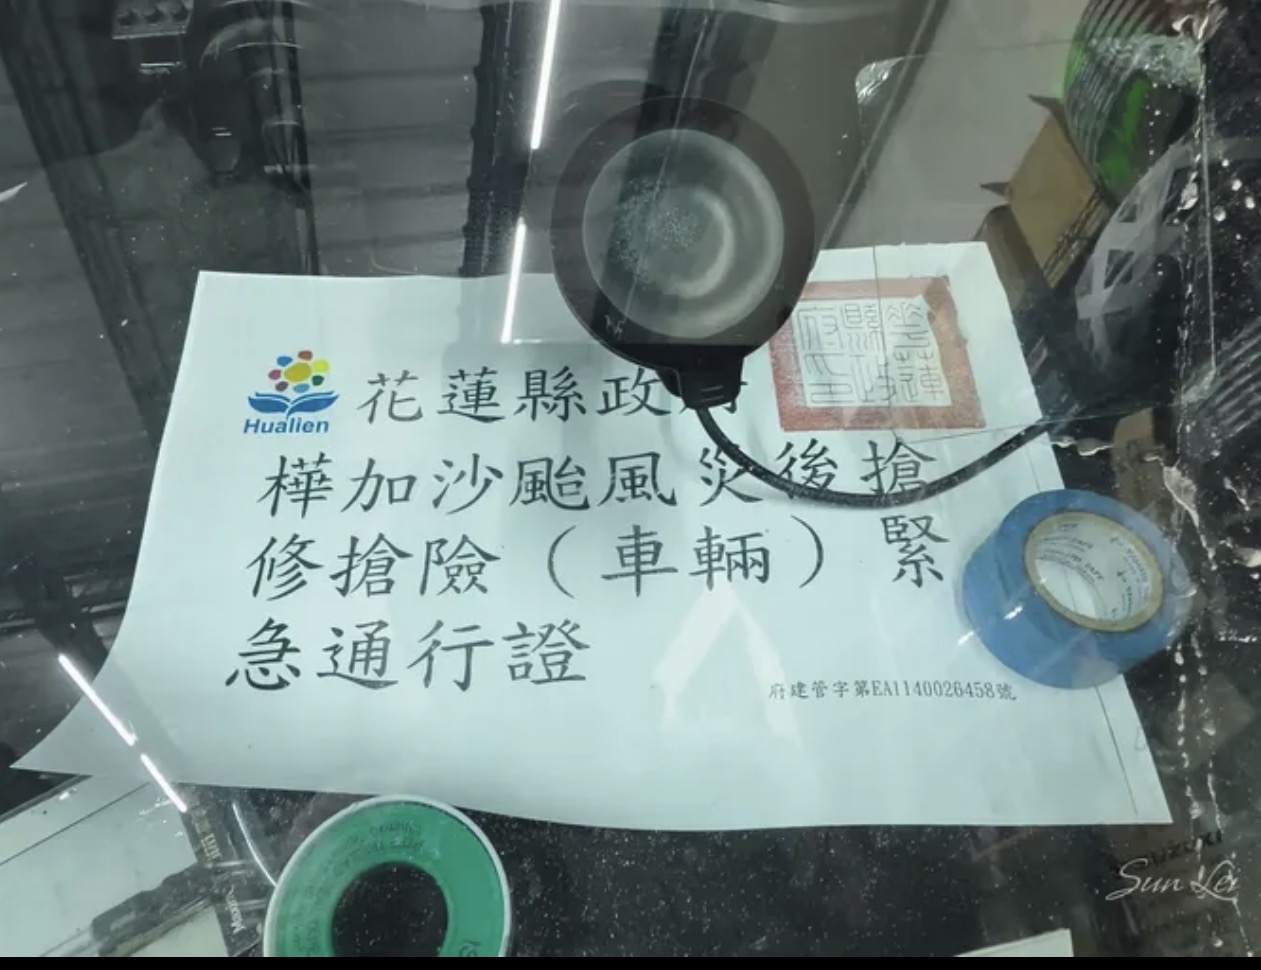 Hualien
花蓮縣政府
花蓮縣政府印
樺加沙颱風災後搶
修搶險（車輛）緊
急通行證
府建管字第EA1140026458號
Sun Lei